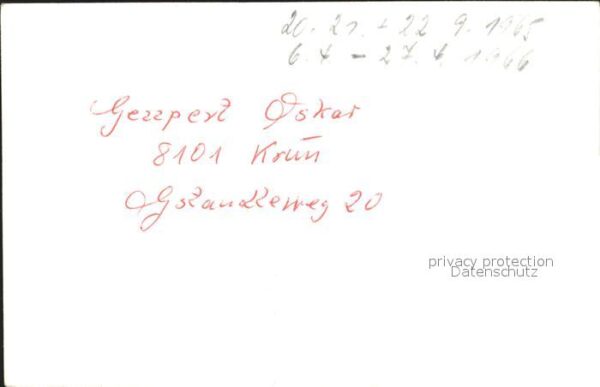 20. 21. - 22 9. 1965
6. 4 - 27. 4. 1966
Oskar
8101 Krün
20
privacy protection
Datenschutz